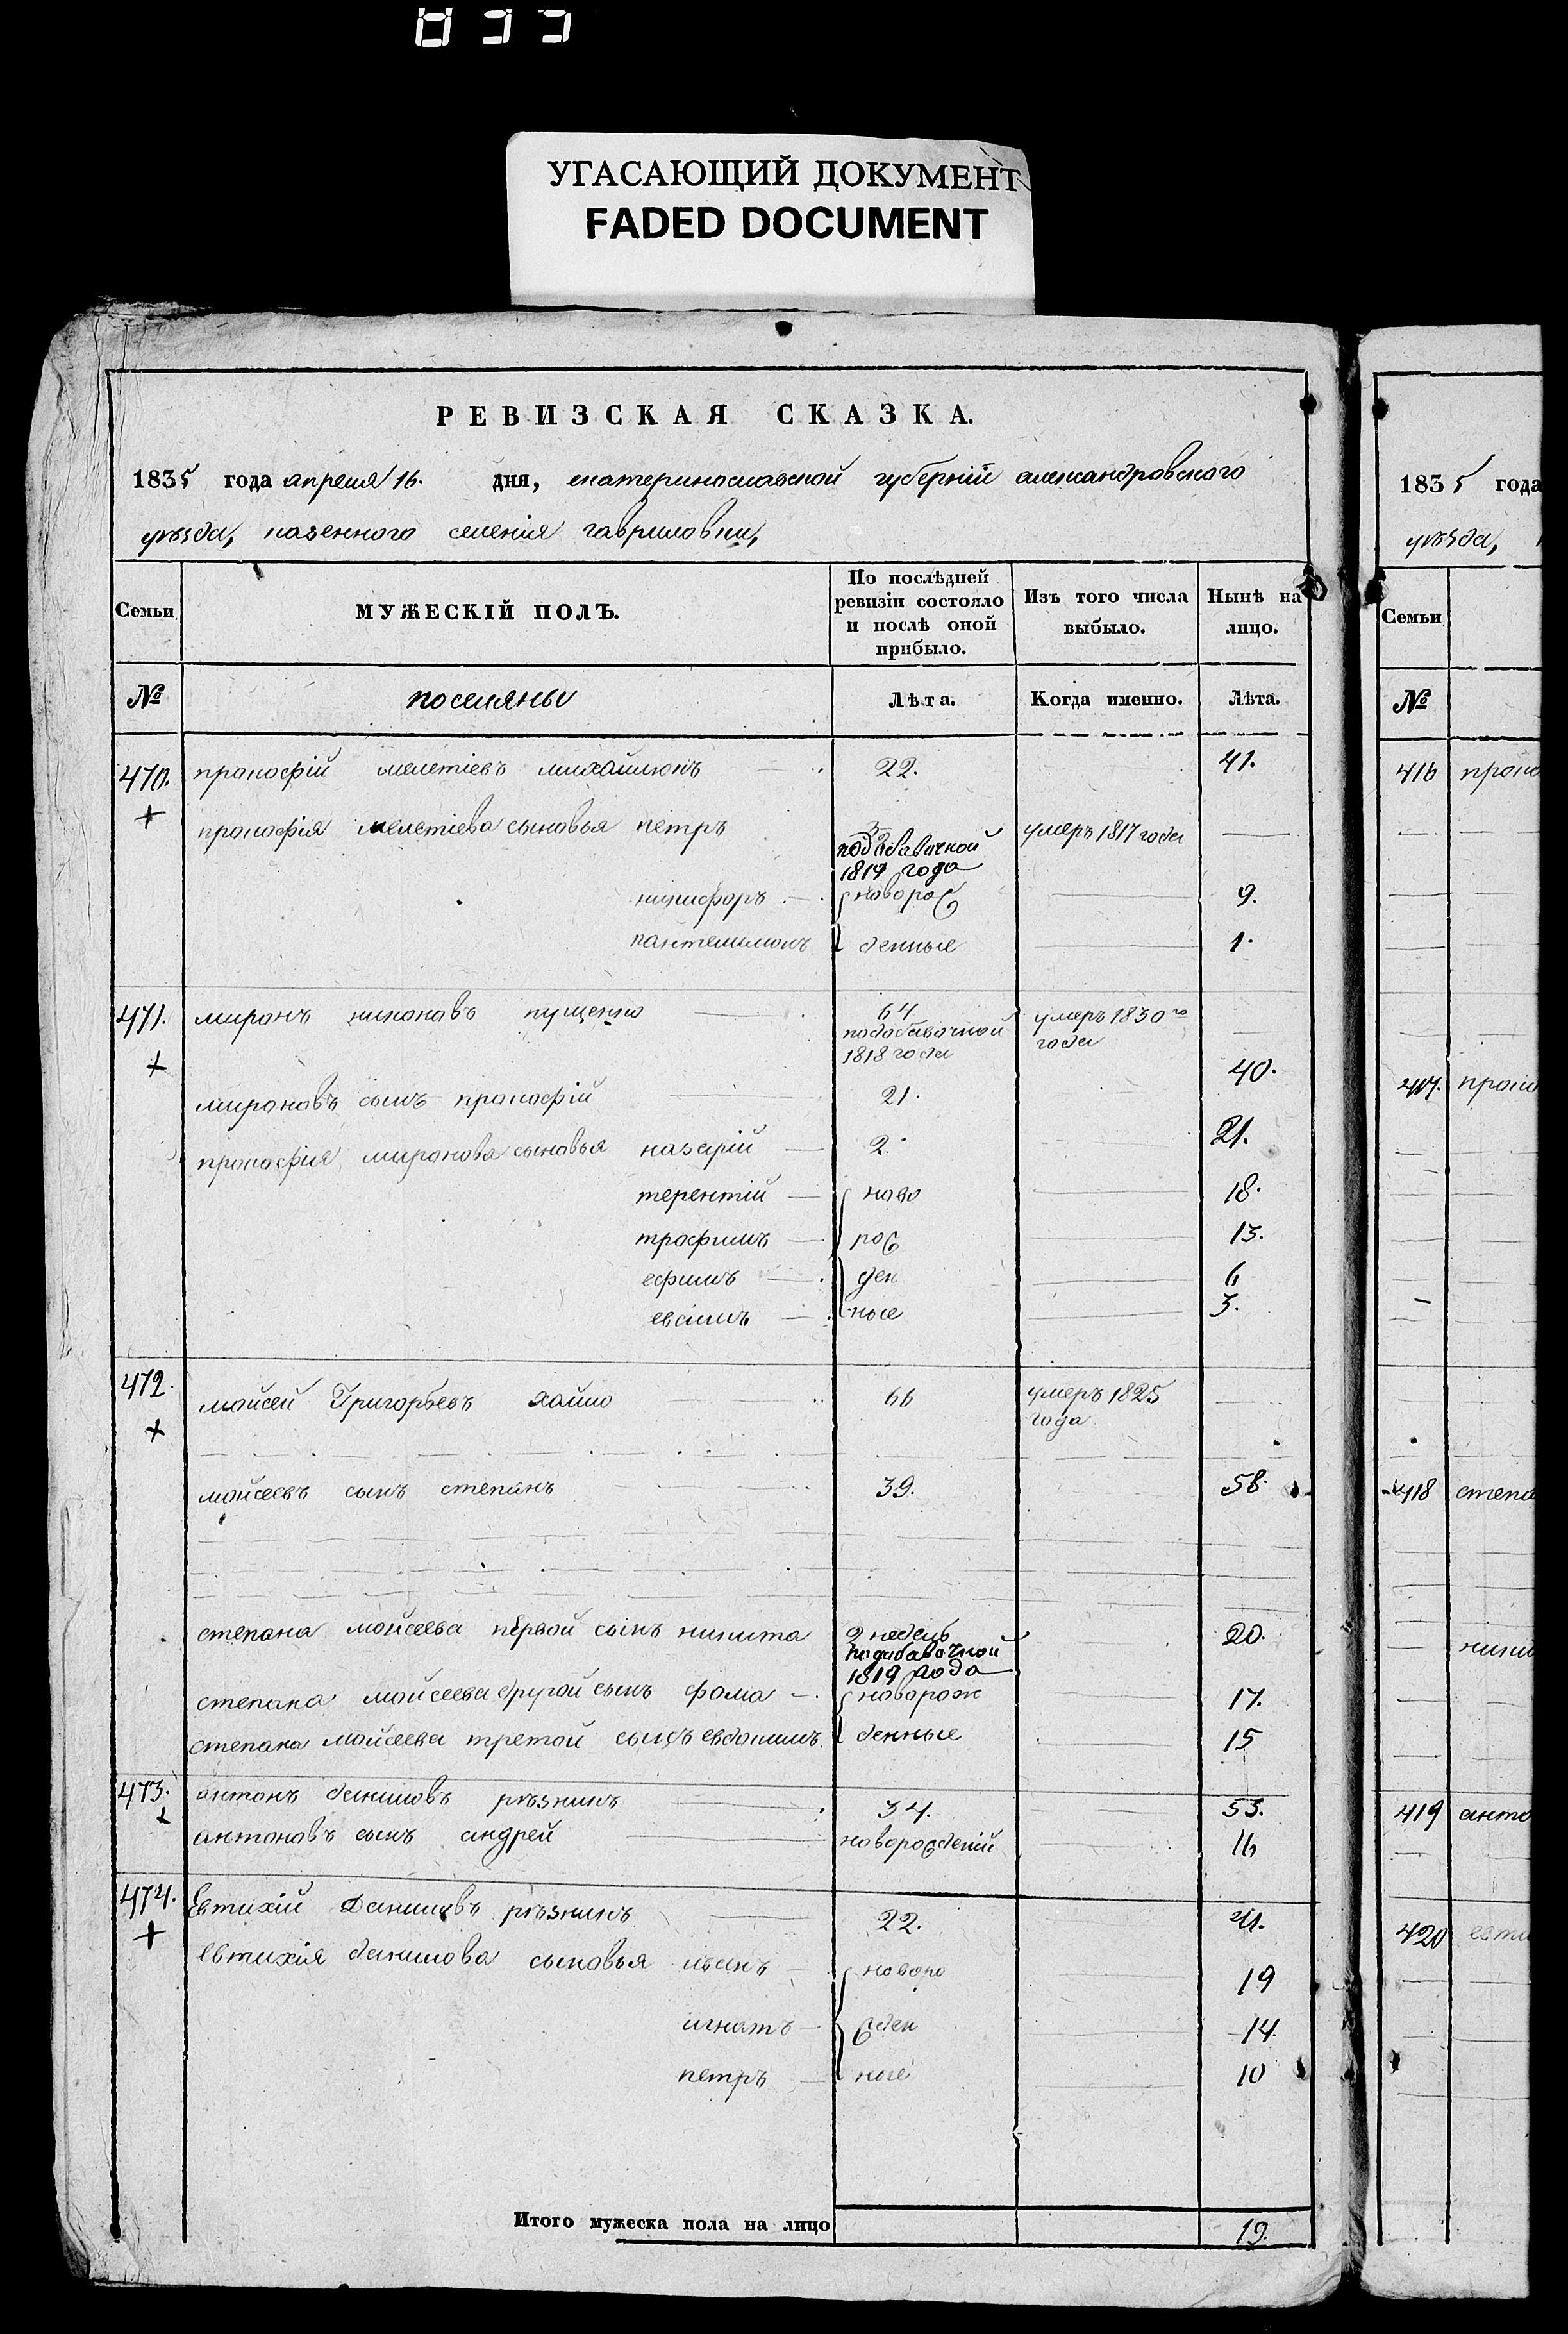 833
УГАСАЮЩИЙ ДОКУМЕНТ
FADED DOCUMENT
РЕВИЗСКАЯ СКАЗКА.
1835 года апреля 16. дня, екатеринославской губернiи александровского
уѣзда, казенного селенiя гавриловки,
Семьи
МУЖЕСКІЙ ПОЛЪ.
По послѣдней ревизіи состояло и послѣ оной прибыло.
Изъ того числа выбыло.
Нынѣ на лицо.
№ поселяны Лѣта. Когда именно. Лѣта.
470. прокофій мелетіевъ михайлюкъ 22. 41.
прокофія мелетіева сыновья петръ 3 умеръ 1817 года
подобавочной
1819 года
никифоръ новорож 9.
пантелимонъ денные 1.
471. миронъ никоновъ пущенко 64 умеръ 1830го года
подобавочной
1818 года
мироновъ сынъ прокофій 21. 40.
прокофія миронова сыновья назарій 2. 21.
терентій ново 18.
трофимъ рож 13.
ефимъ ден 6
ные 3.
472. мойсей Григорьевъ хайло 66 умеръ 1825 года
мойсеевъ сынъ степанъ 39. 58.
степана мойсеева первой сынъ никита 2 недель 20.
подобавочной
1819 года
степана мойсеева другой сынъ фома новорож 17.
степана мойсеева третой сынъ евдокимъ денные 15
473. антонъ даниловъ рѣзникъ 34. 53.
антоновъ сынъ андрей новорожденій 16
474. Евтихій Даниловъ рѣзникъ 22. 41.
евтихія данилова сыновья иванъ новоро 19
игнатъ жден 14.
петръ ные 10
Итого мужеска пола на лицо 19.
1835 года
уѣзда,
Семьи
№
416 проко
417. проко
418 степа
ники
419 анто
420 евти